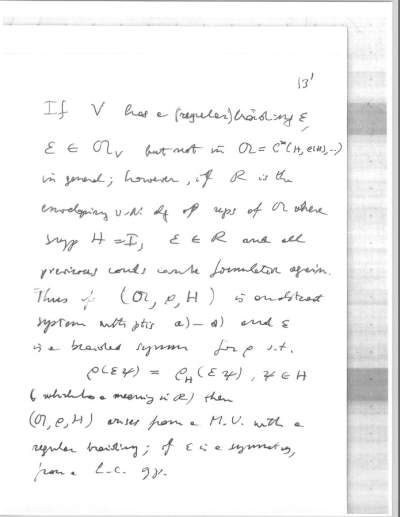 13'
If V has a (regular) braiding ε,
ε ∈ 𝔄_V but not in 𝔄 = C*(H, ρ(H), ..)
in general; however, if R is the
enveloping v.N. alg of reps of 𝔄 where
supp H = I, ε ∈ R and all
previous conds can be formulated again.
Thus if (𝔄, ρ, H) is an abstract
system with ptis a) – d) and ε
is a braided symm for ρ s.t.
ρ(εψ) = ρ_H(εψ), ψ ∈ H
(which has a meaning in R) then
(𝔄, ρ, H) arises from a M.U. with a
regular braiding; if ε is a symmetry,
from a l.c. gp.